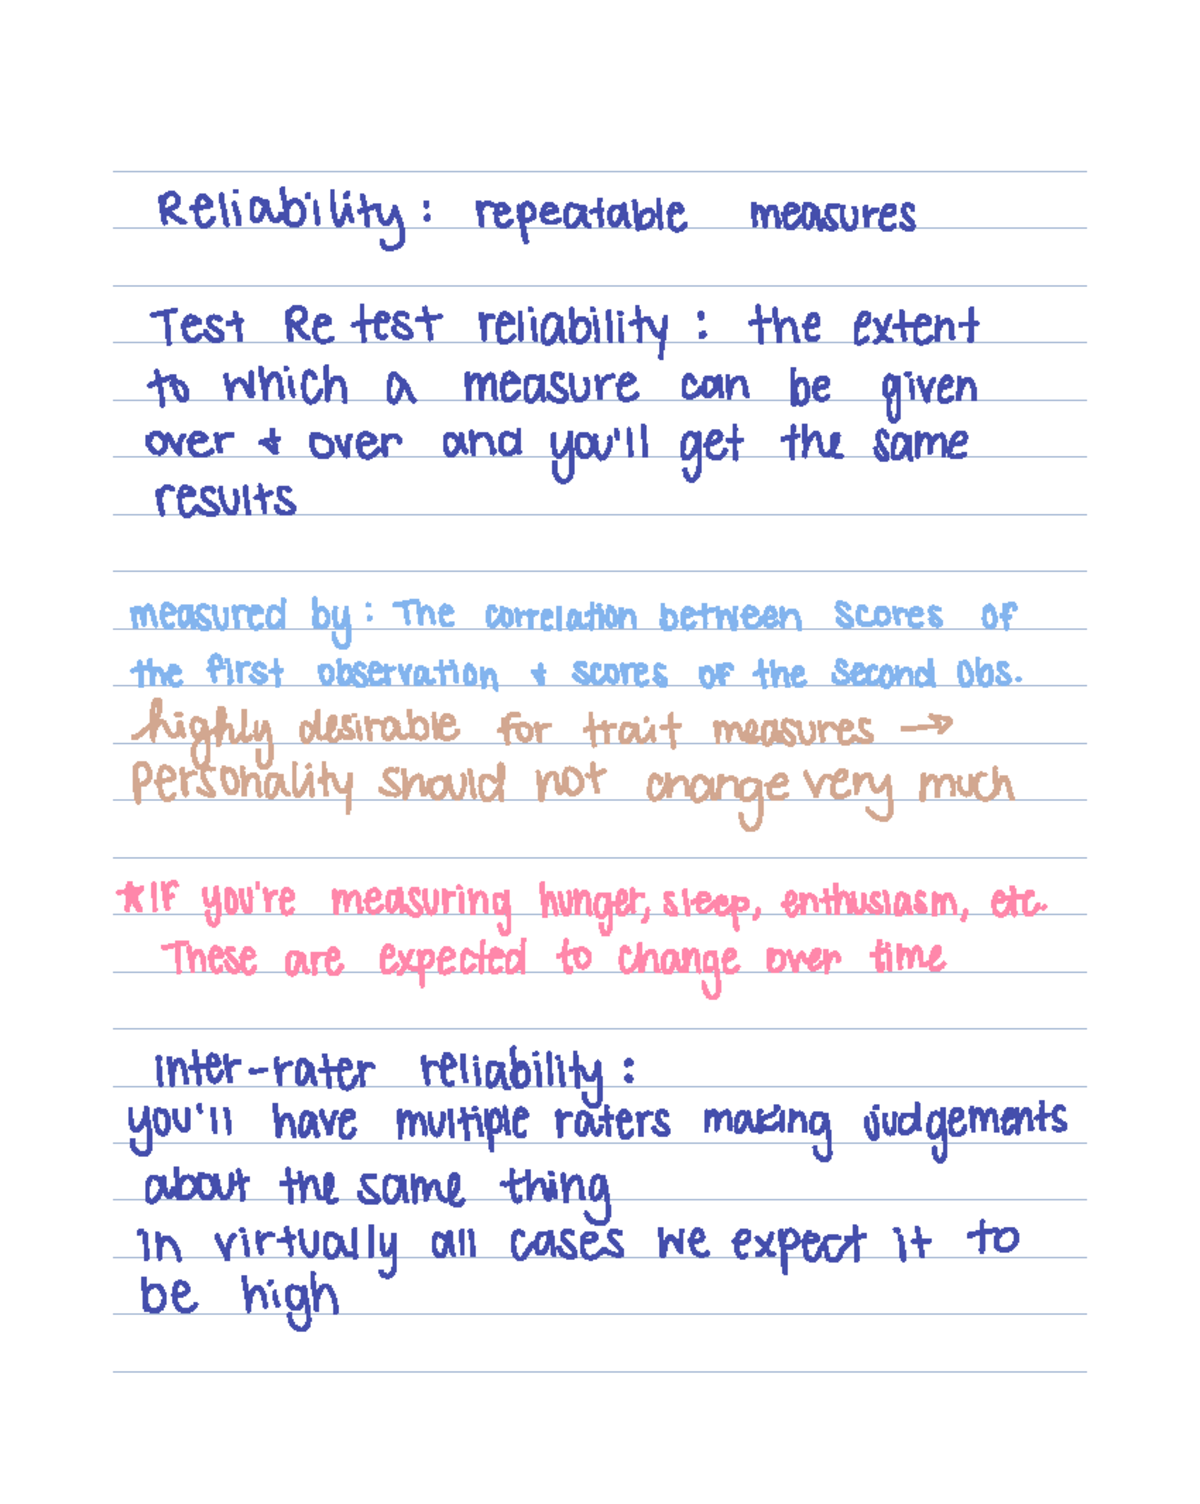 Reliability: repeatable measures
Test Re test reliability: the extent
to which a measure can be given
over + over and you'll get the same
results
measured by: The correlation between scores of
the first observation + scores of the second obs.
highly desirable for trait measures →
Personality should not change very much
*If you're measuring hunger, sleep, enthusiasm, etc.
These are expected to change over time
Inter-rater reliability:
you'll have multiple raters making judgements
about the same thing
in virtually all cases we expect it to
be high